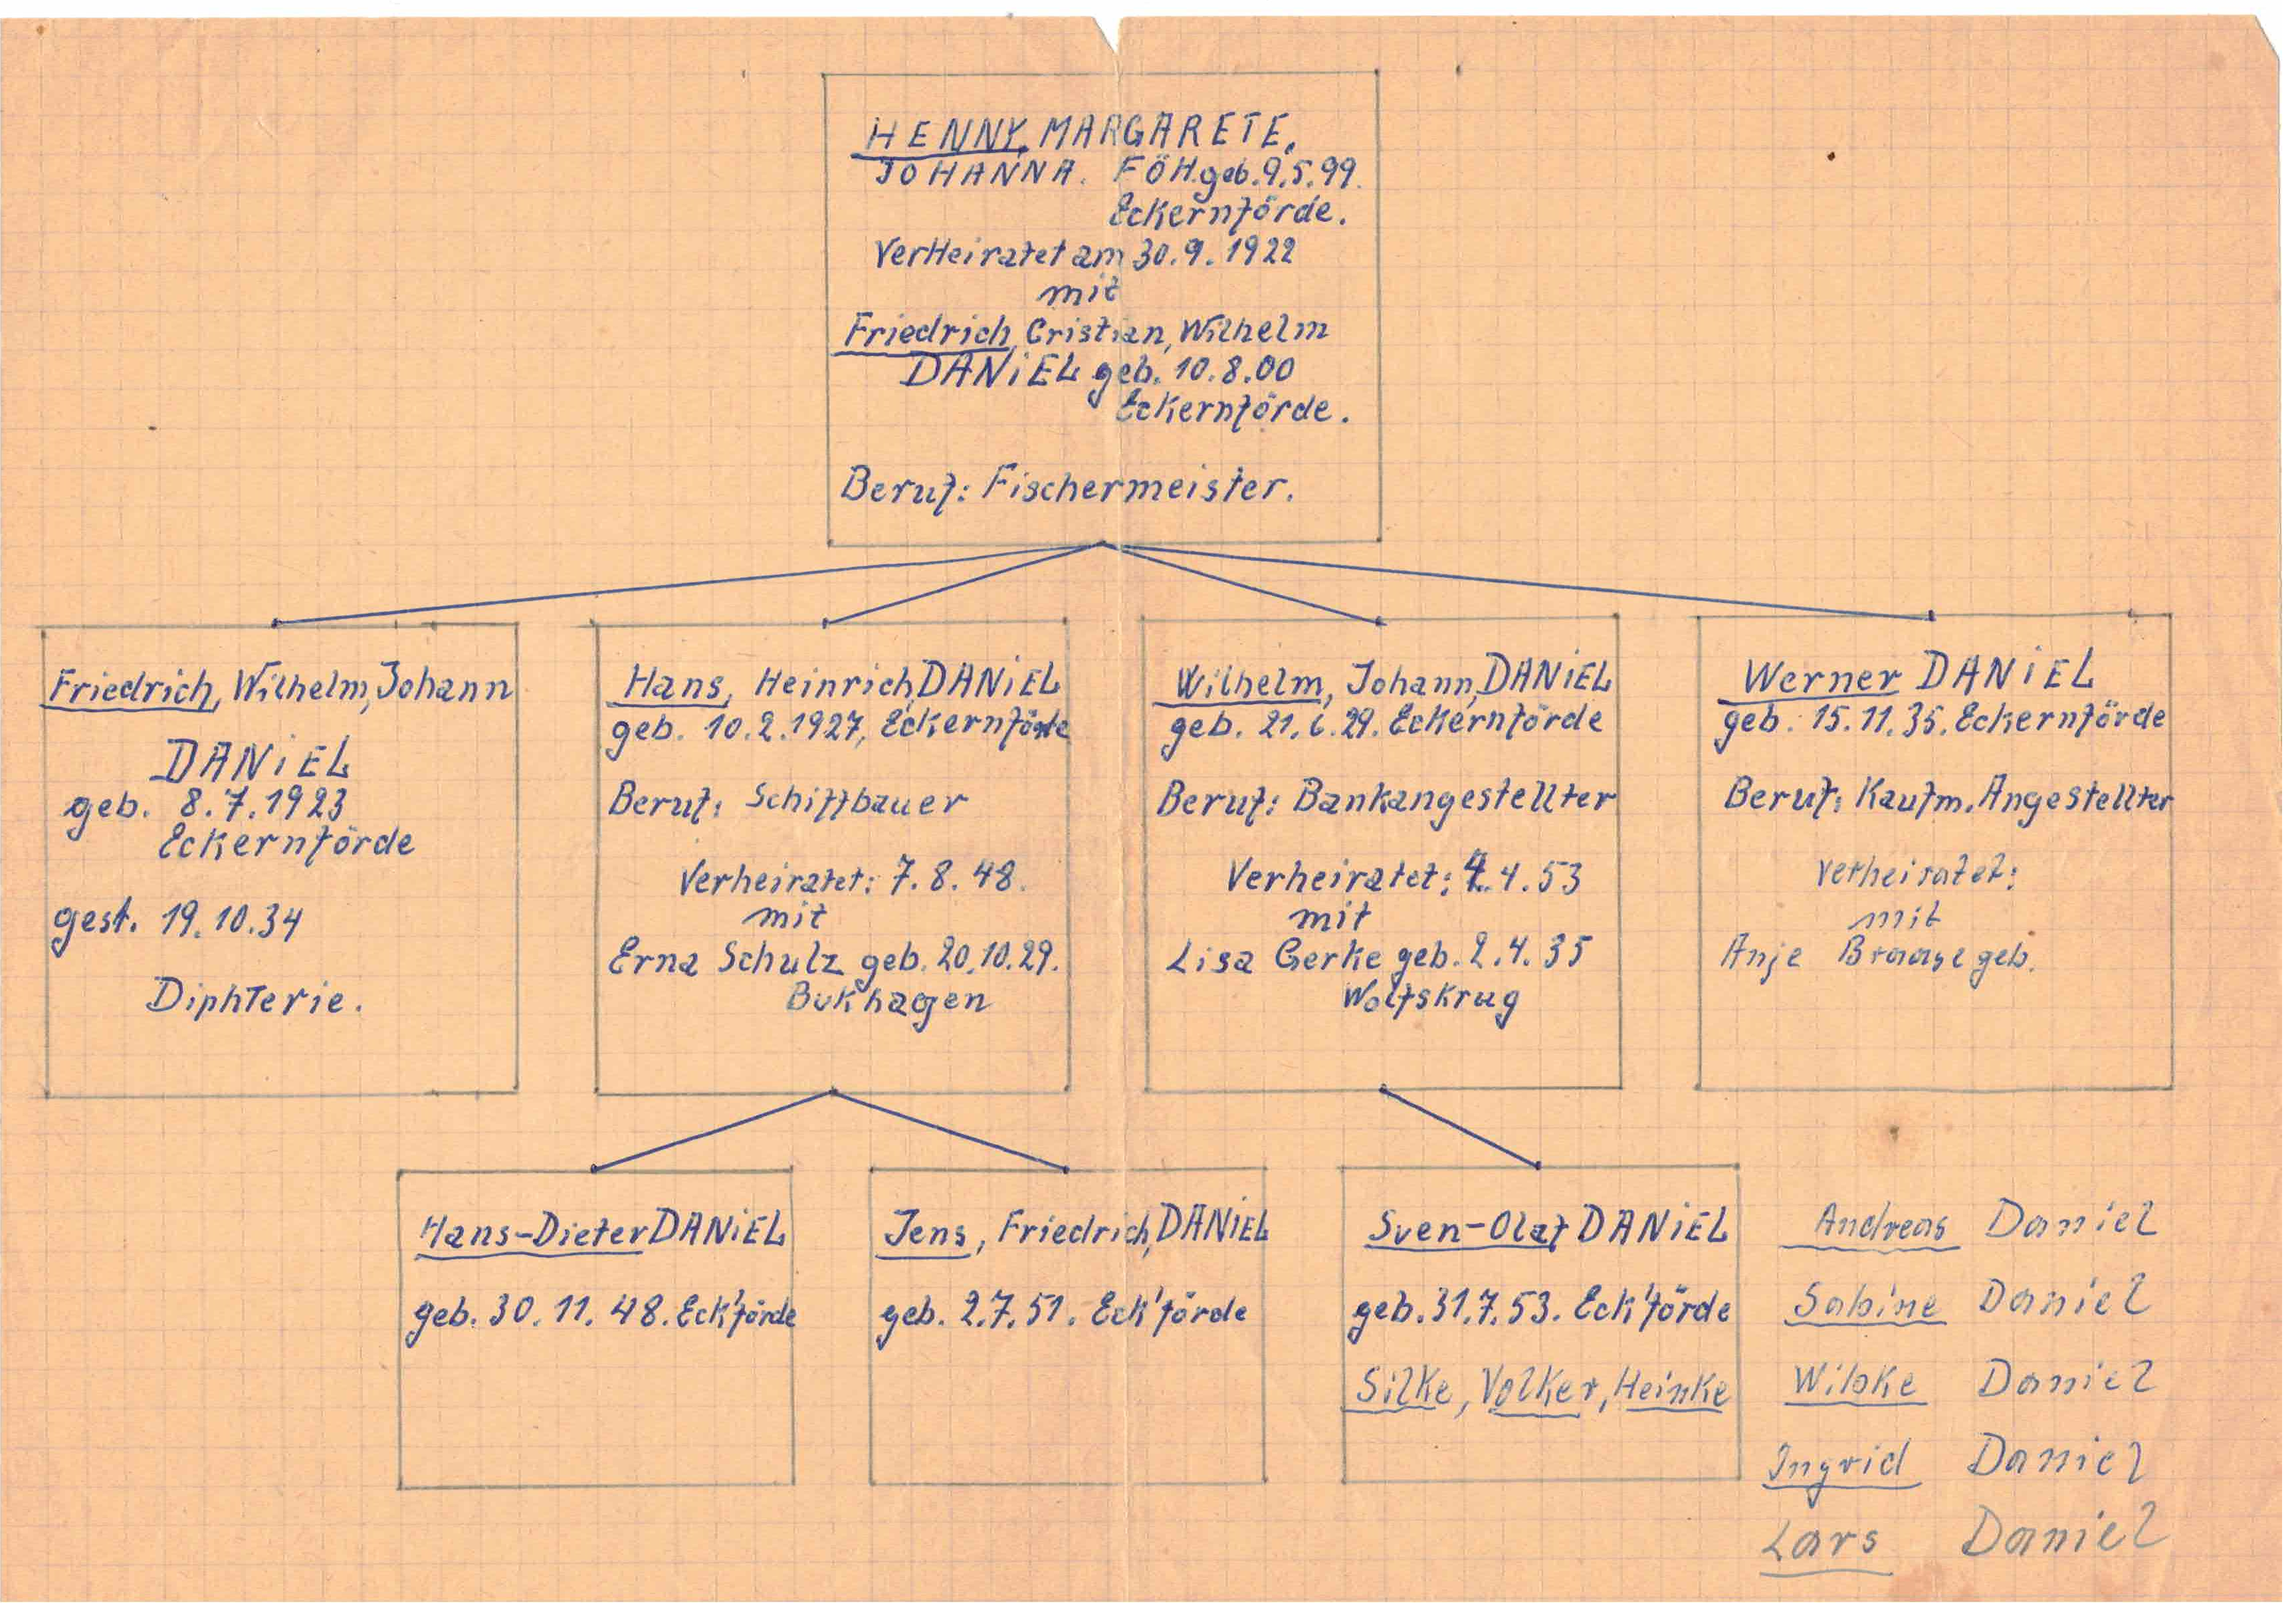 HENNY, MARGARETE,
JOHANNA. FÖH. geb. 9.5.99.
Eckernförde.
VerHeiratet am 30.9.1922
mit
Friedrich, Cristian, Wilhelm
DANiEL geb. 10.8.00
Eckernförde.
Beruf: Fischermeister.
Friedrich, Wilhelm, Johann
DANiEL
geb. 8.7.1923
Eckernförde
gest. 19.10.34
DiphTerie.
Hans, Heinrich, DANiEL
geb. 10.2.1927, Eckernförde
Beruf: Schiffbauer
Verheiratet: 7.8.48.
mit
Erna Schulz geb. 20.10.29.
Bukhagen
Wilhelm, Johann, DANiEL
geb. 21.6.29. Eckernförde
Beruf: Bankangestellter
Verheiratet: 4.4.53
mit
Lisa Gerke geb. 2.4.35
Wolfskrug
Werner DANiEL
geb. 15.11.35. Eckernförde
Beruf: Kaufm. Angestellter
Verheiratet:
mit
Anje Braase geb.
Hans-Dieter DANiEL
geb. 30.11.48. Eck'förde
Jens, Friedrich, DANiEL
geb. 2.7.51. Eck'förde
Sven-Olaf DANiEL
geb. 31.7.53. Eck'förde
Silke, Volker, Heinke
Andreas Daniel
Sabine Daniel
Wibke Daniel
Ingrid Daniel
Lars Daniel